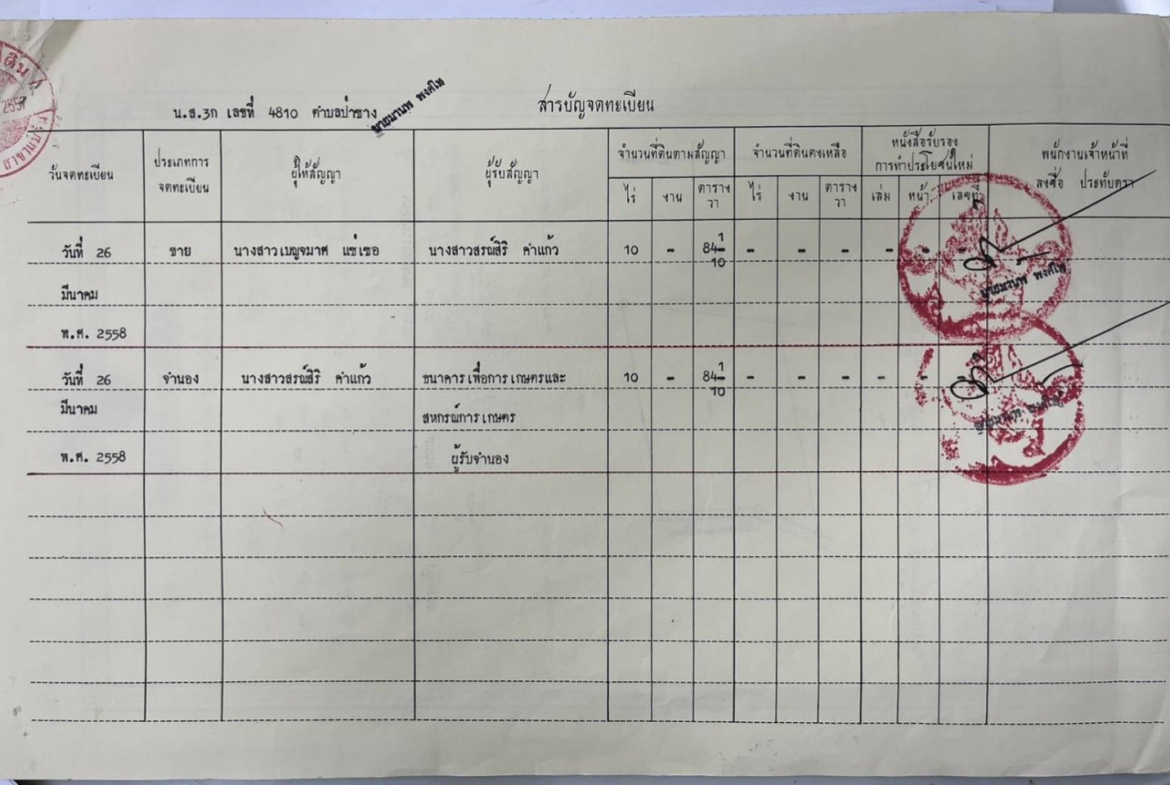 สารบัญจดทะเบียน
น.ส.3ก เลขที่ 4810 ตำบลป่าซาง นายมานพ พงศ์ไพ
วันจดทะเบียน ประเภทการจดทะเบียน ผู้ให้สัญญา ผู้รับสัญญา จำนวนที่ดินตามสัญญา จำนวนที่ดินคงเหลือ หนังสือรับรองการทำประโยชน์ใหม่ พนักงานเจ้าหน้าที่ ลงชื่อ ประทับตรา
ไร่ งาน ตารางวา ไร่ งาน ตารางวา เล่ม หน้า เลขที่
วันที่ 26 ขาย นางสาวเบญจมาศ แซ่เซอ นางสาวสรณ์สิริ คำแก้ว 10 - 84 1/10 - - - - - -
มีนาคม
พ.ศ. 2558
วันที่ 26 จำนอง นางสาวสรณ์สิริ คำแก้ว ธนาคารเพื่อการเกษตรและ 10 - 84 1/10 - - - - -
มีนาคม สหกรณ์การเกษตร
พ.ศ. 2558 ผู้รับจำนอง